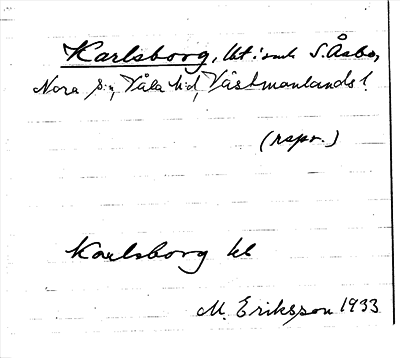 Karlsborg, lht : smh S. Åsbo,
Nora sn, Våla hd, Västmanlands l.
(rspr.)
Karlsborg lht
M. Eriksson 1933